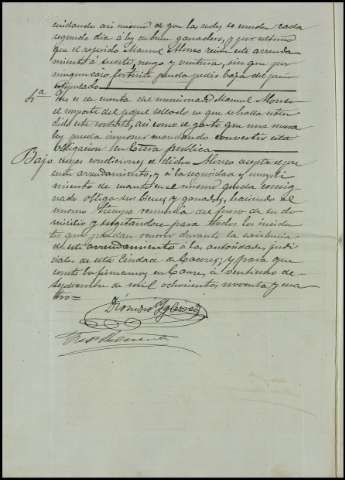 cuidando asi mismo de que la redes se mude cada
segundo dia á los ganados, y por ultimo
que el referido Manuel Alonso recibe este arrenda
miento á suerte, riesgo y ventura, sin que por
ningun caso fortuito pueda pedir baja del
estipulado
4ª Que es de cuenta del mencionado Manuel Alonso
el importe del papel sellado en que se halla exten
dido este contrato, asi como los gastos que una nueva
ley pueda imponer mandando convertir esta
obligacion en Escra publica
Bajo cuyas condiciones el dicho Alonso acepta el pre
sente arrendamiento, y á la seguridad y cumpli
miento de cuanto en el mismo queda consig
nado obliga sus bienes y ganados, haciendo al
mismo tiempo renuncia del fuero de su do
micilio y sujetandose para todos los inciden
tes que puedan ocurrir durante la
de este arrendamiento á la autoridad judi
cial de esta Ciudad de Caceres; y para que
conste lo firmamos en Caceres, á veintiocho de
de mil ochocientos noventa y cua
tro=
Dionisio Yglesias